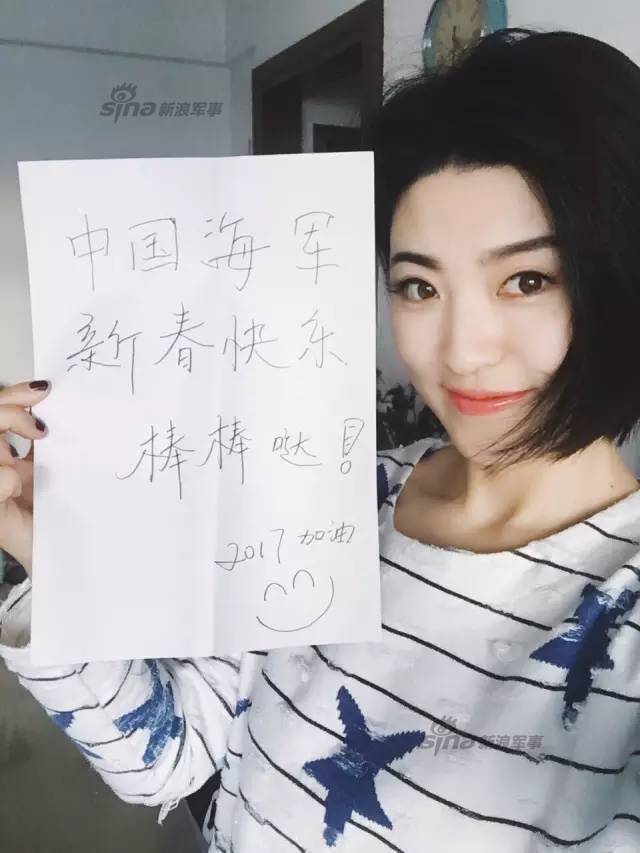 sina新浪军事
中国海军
新春快乐
棒棒哒!
2017加油
sina新浪军事